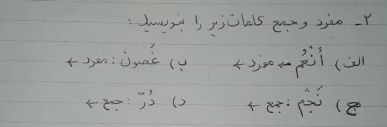 ۲- مفرد و جمع کلمات زیر را بنویسید:
الف) أَنْعُم ← مفرد ← ب) غُصون: مفرد ←
ج) نَجْم: جمع ← د) دُرّ: جمع ←